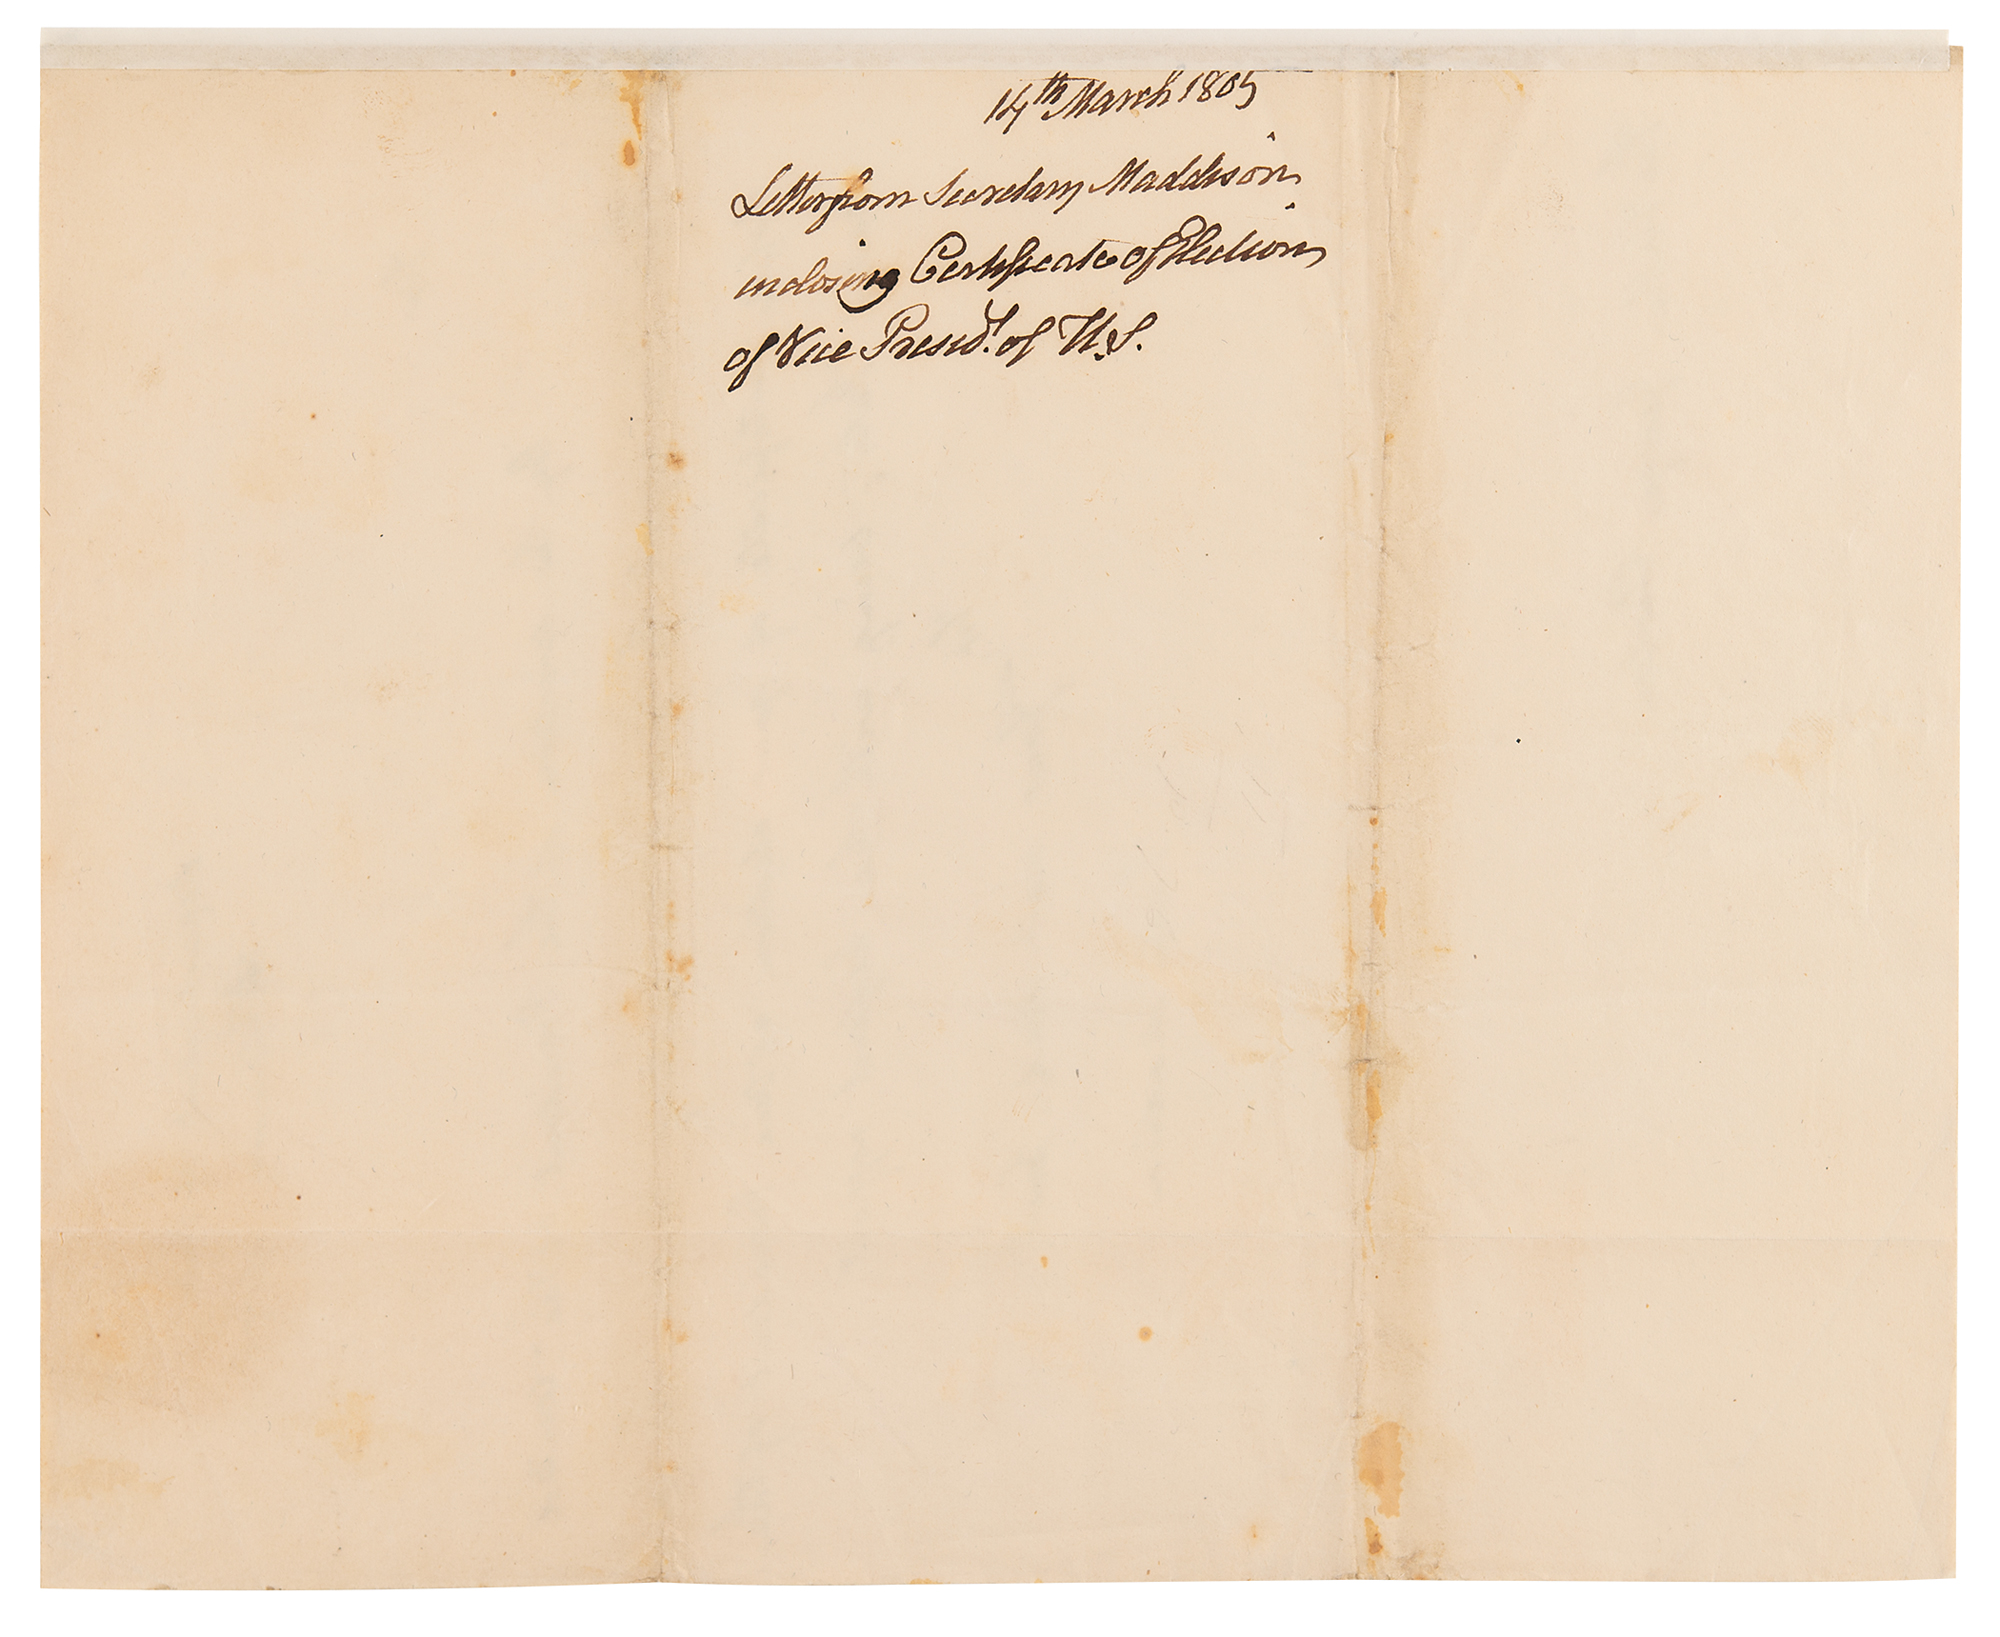 14th March 1805
Letter from Secretary Maddison
inclosing Certificate of Election
of Vice Presidt. of U.S.